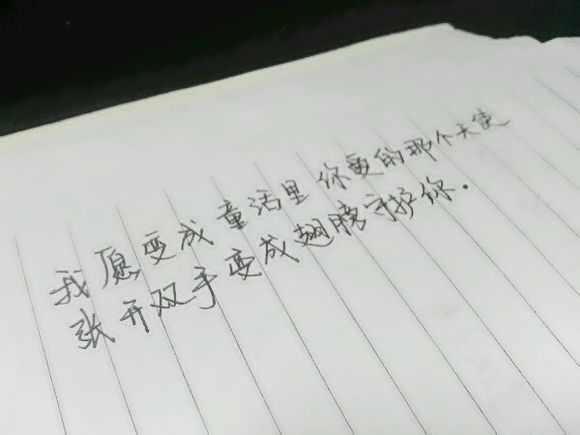 我愿变成童话里你爱的那个天使
张开双手变成翅膀守护你.